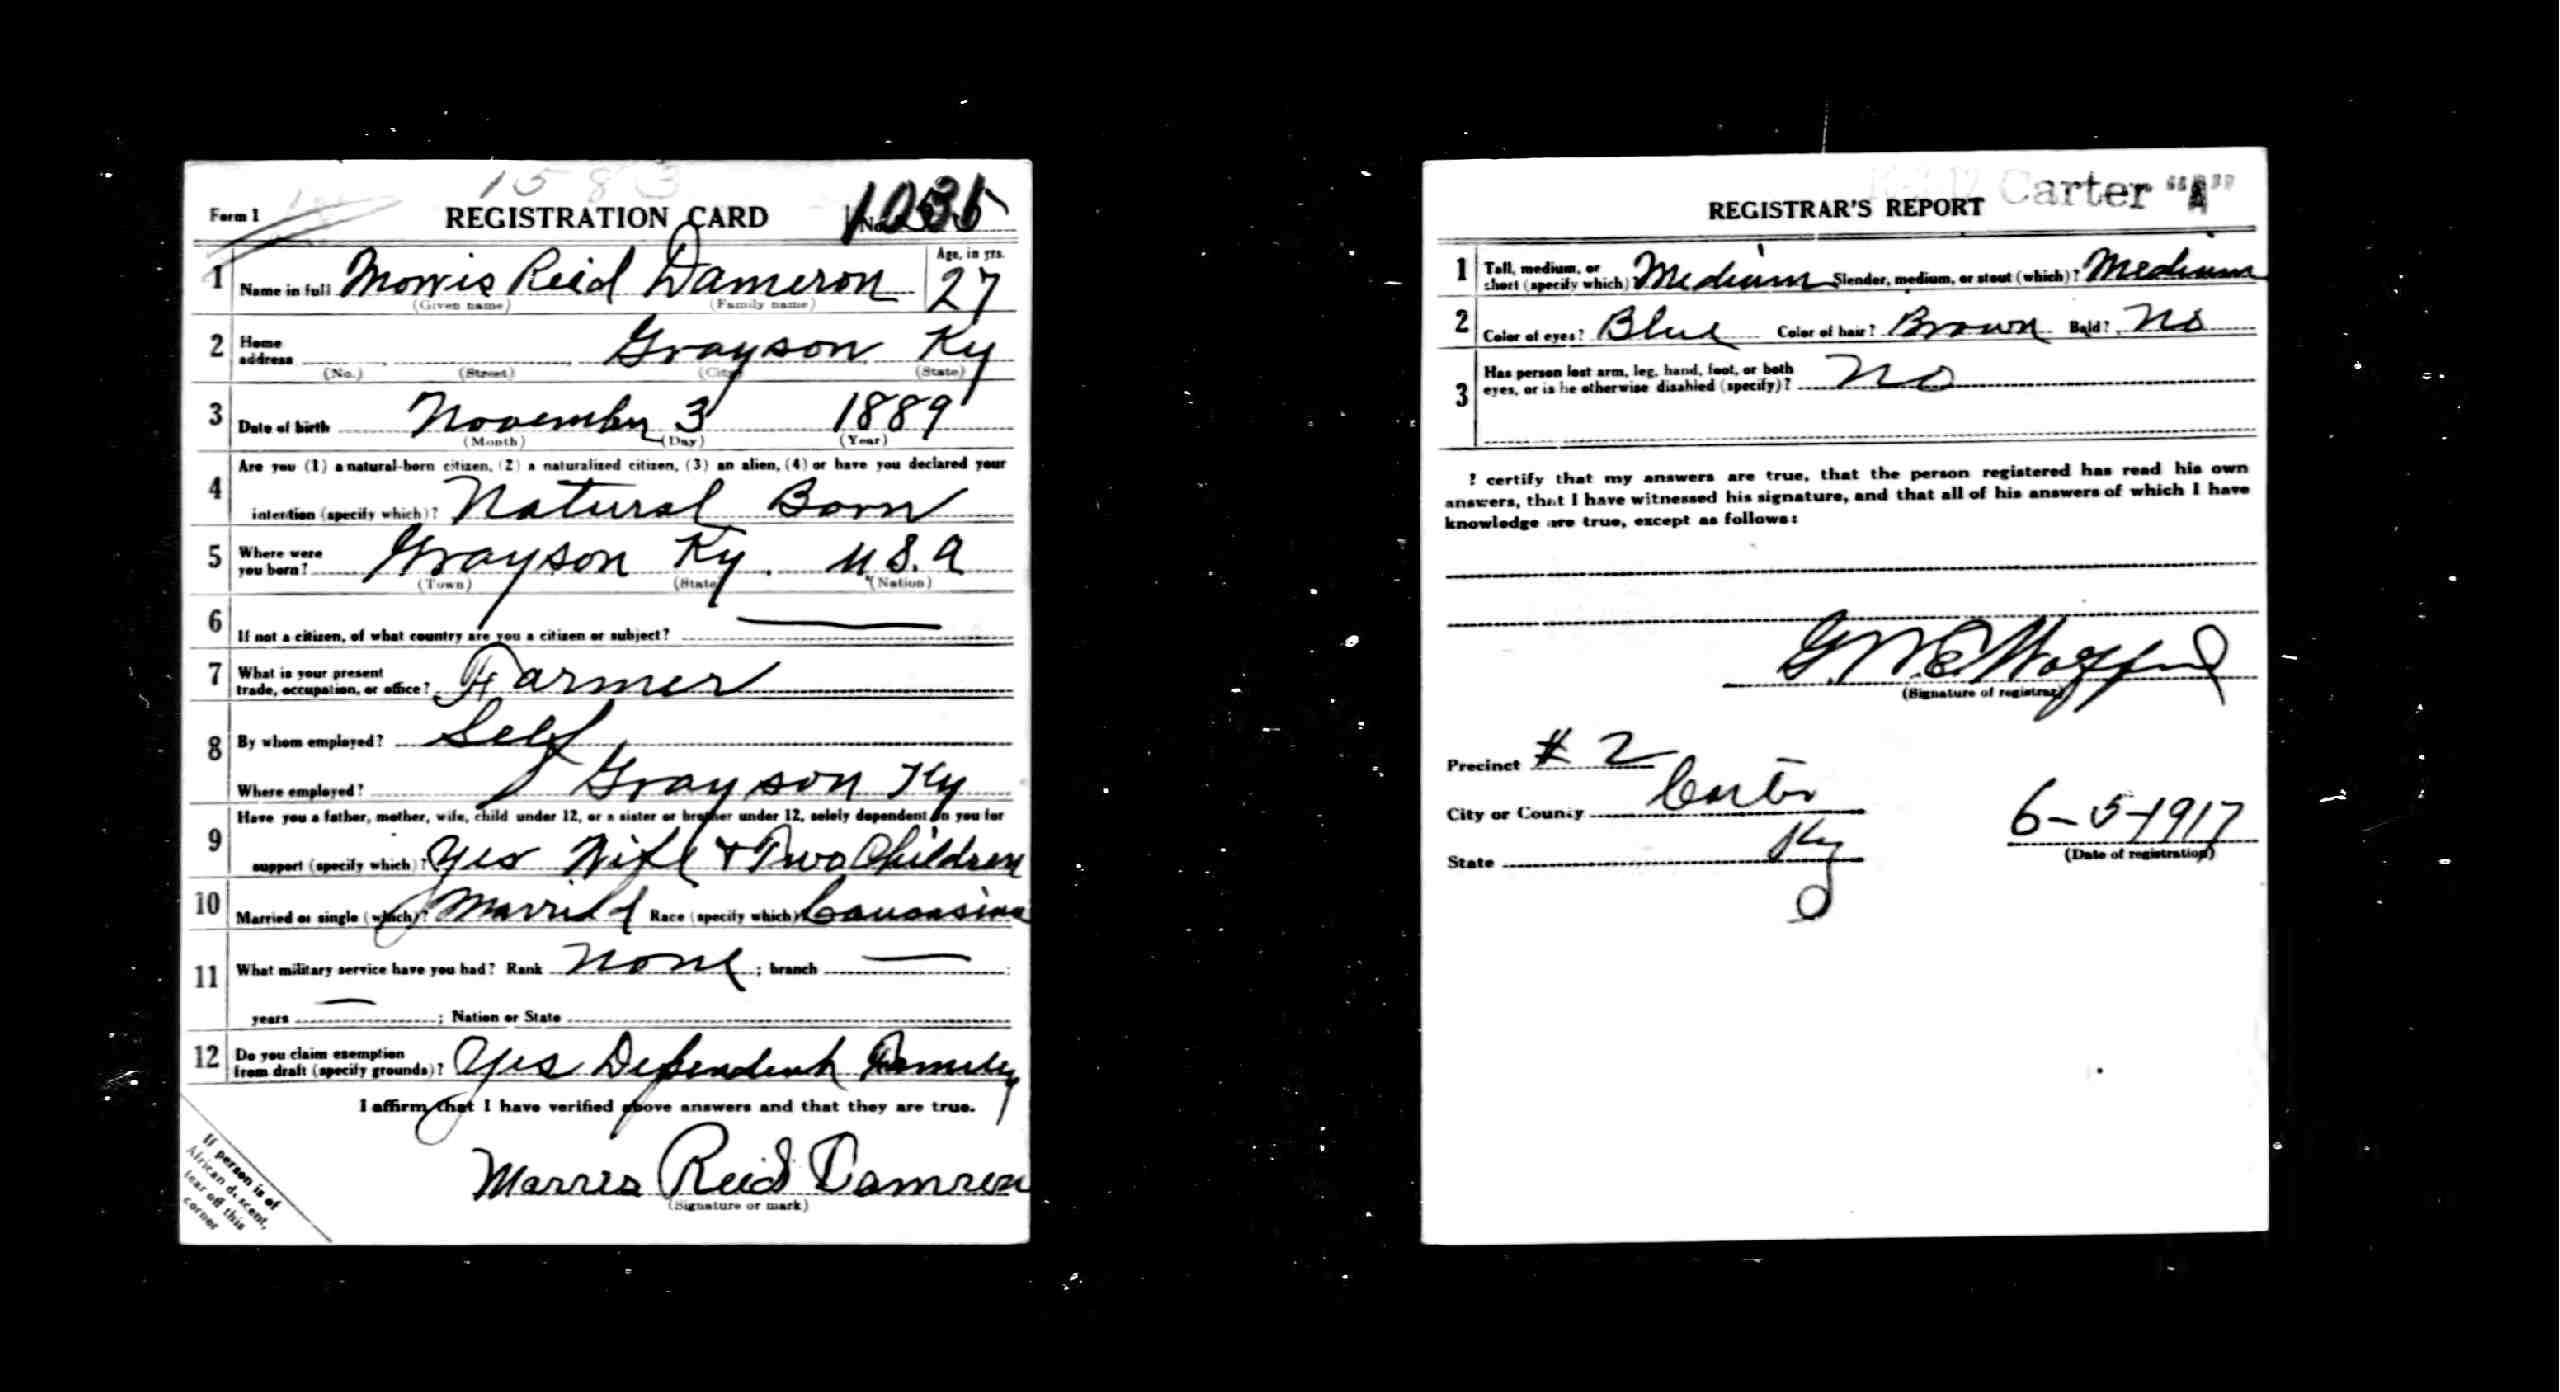 1583
Form 1 REGISTRATION CARD No.
1 Name in full Morris Reid Dameron Age, in yrs. 27
(Given name) (Family name)
2 Home address Grayson Ky
(No.) (Street) (City) (State)
3 Date of birth November 3 1889
(Month) (Day) (Year)
4 Are you (1) a natural-born citizen, (2) a naturalized citizen, (3) an alien, (4) or have you declared your
intention (specify which)? Natural Born
5 Where were you born? Grayson Ky. U.S.A
(Town) (State) (Nation)
6 If not a citizen, of what country are you a citizen or subject? —
7 What is your present trade, occupation, or office? Farmer
8 By whom employed? Self
Where employed? Grayson Ky
9 Have you a father, mother, wife, child under 12, or a sister or brother under 12, solely dependent on you for
support (specify which)? Yes Wife + Two Children
10 Married or single (which)? Married Race (specify which)? Caucasian
11 What military service have you had? Rank None ; branch — ;
years — ; Nation or State
12 Do you claim exemption from draft (specify grounds)? Yes Dependent Family
I affirm that I have verified above answers and that they are true.
Morris Reid Damron
(Signature or mark)
If person is of
African descent,
tear off this
corner
Carter "A"
REGISTRAR'S REPORT
1 Tall, medium, or short (specify which)? Medium Slender, medium, or stout (which)? Medium
2 Color of eyes? Blue Color of hair? Brown Bald? No
3 Has person lost arm, leg, hand, foot, or both
eyes, or is he otherwise disabled (specify)? No
I certify that my answers are true, that the person registered has read his own
answers, that I have witnessed his signature, and that all of his answers of which I have
knowledge are true, except as follows:
(Signature of registrar)
Precinct # 2
City or County Carter
State Ky
6-5-1917
(Date of registration)